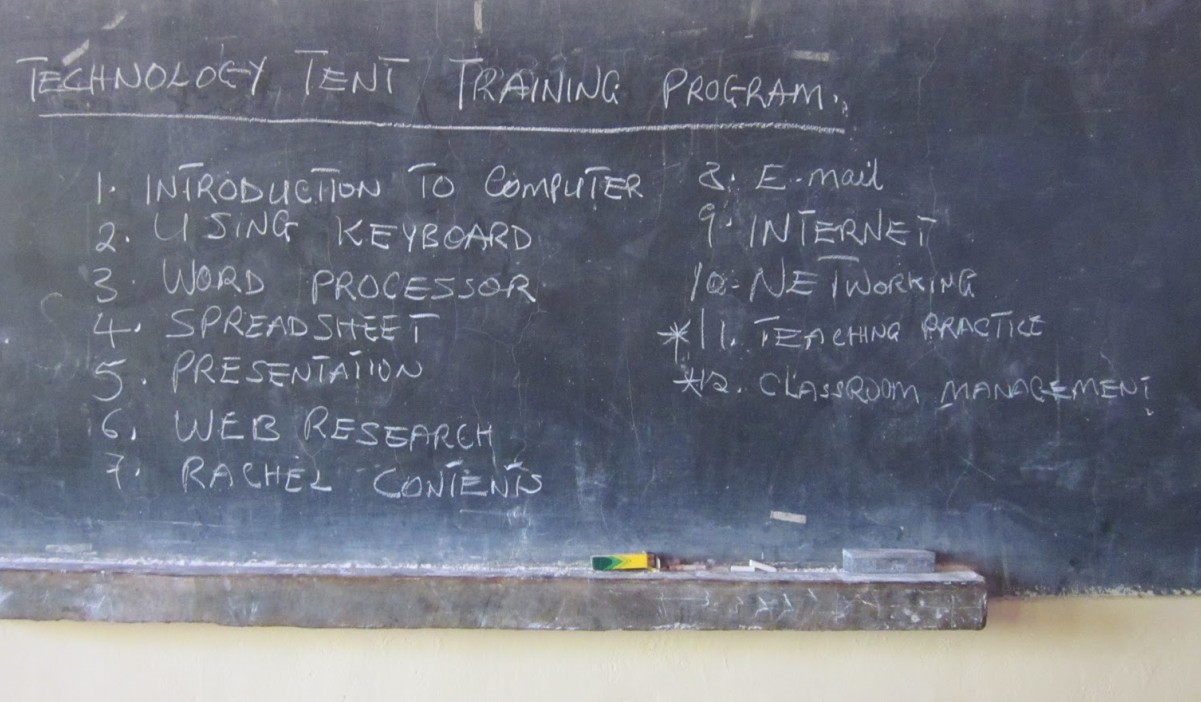 TECHNOLOGY TENT TRAINING PROGRAM.
1. INTRODUCTION TO COMPUTER
2. USING KEYBOARD
3. WORD PROCESSOR
4. SPREADSHEET
5. PRESENTATION
6. WEB RESEARCH
7. RACHEL CONTENTS
8. E-mail
9. INTERNET
10. NETWORKING
*11. TEACHING PRACTICE
*12. CLASSROOM MANAGEMENT